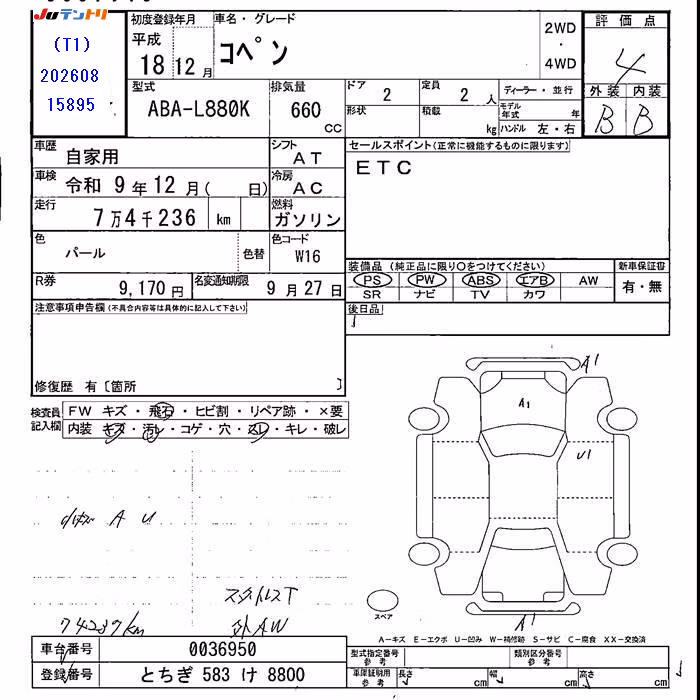 JUテントリ
(T1)
202608
15895
初度登録年月
平成
18 12 月
車名・グレード
コペン
2WD
・
4WD
評価点
4
外装 内装
B B
型式
ABA-L880K
排気量
660
CC
ドア
2
定員
2 人
形状
積載
kg
ディーラー・並行
モデル年式 年
ハンドル 左・右
車歴
自家用
シフト
AT
車検
令和 9 年 12 月( 日)
冷房
AC
走行
7万4千236 km
燃料
ガソリン
色
パール
色替
色コード
W16
R券
9,170 円
名変通知期限
9 月 27 日
セールスポイント(正常に機能するものに限ります)
ETC
装備品(純正品に限り〇をつけてください)
新車保証書
PS PW ABS エアB AW
SR ナビ TV カワ
有・無
後日品
注意事項申告欄(不具合内容等は具体的に記入して下さい)
修復歴 有〔箇所 〕
検査員記入欄
FW キズ・飛石・ヒビ割・リペア跡・×要
内装 キズ・汚レ・コゲ・穴・スレ・キレ・破レ
A1
A1
U1
A1
A U
スタットレスT
外AW
74237km
スペア
A-キズ E-エクボ U-凹み W-補修跡 S-サビ C-腐食 XX-交換済
車台番号
0036950
登録番号
とちぎ 583 け 8800
型式指定番号
参考
類別区分番号
参考
車庫証明用
参考
長さ cm
幅 cm
高さ cm